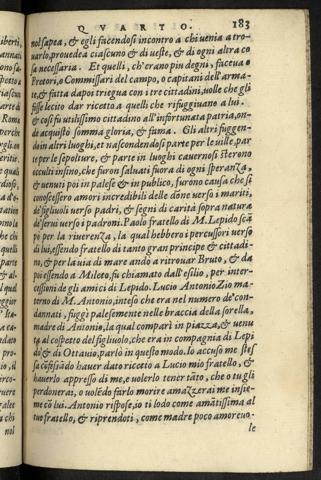 QVARTO. 183
nol sapea, & egli facendosi incontro a chi venia a tro-
uarlo, prouedea ciascuno & di ueste, & di ogni altra co
sa necessaria. Et quelli, ch'erano piu degni, faceua o
Pretori, o Commissari del campo, o capitani dell'arma-
te, & fatta dapoi triegua con i tre cittadini, uolle che gli
fusse lecito dar ricetto a quelli che rifuggiuano a lui.
& cosi fu utilissimo cittadino all'infortunata patria, on-
de acquistò somma gloria, & fama. Gli altri fuggen-
do in altri luoghi, et nascondendosi parte per le uille, par
te per le sepolture, & parte in luoghi cauernosi sterono
occulti insino, che furon saluati fuora di ogni speranza,
& uenuti poi in palese & in publico, furono causa che si
conoscessero amori incredibili delle dōne uerso i mariti,
de figliuoli verso padri, & segni di carità sopra natura
de serui uerso i padroni. Paolo fratello di M. Lepido scā
pò per la riuerenza, la qual hebbero i percussori verso
di lui, essendo fratello di tanto gran principe & cittadi-
no, & per la uia di mare andò a ritrouar Bruto, & da
poi essendo a Mileto, fu chiamato dall'esilio, per inter-
cessioni de gli amici di Lepido. Lucio Antonio Zio ma-
terno di M. Antonio, inteso che era nel numero de' con-
dannati, fuggì palesemente nelle braccia della sorella,
madre di Antonio, la qual comparì in piazza, & uenu
ta al cospetto del figliuolo, che era in compagnia di Lepi
do & di Ottauio, parlò in questo modo. Io accuso me stes
sa cōfessādo hauer dato ricetto a Lucio mio fratello, &
hauerlo appresso di me, e uolerlo tener tāto, che o tu gli
perdoneras, o uolēdo farlo morire amazzerai me insie-
me cō lui. Antonio rispose, io ti lodo come amātissima al
tuo fratello, & riprendoti, come madre poco amoreuo-
le